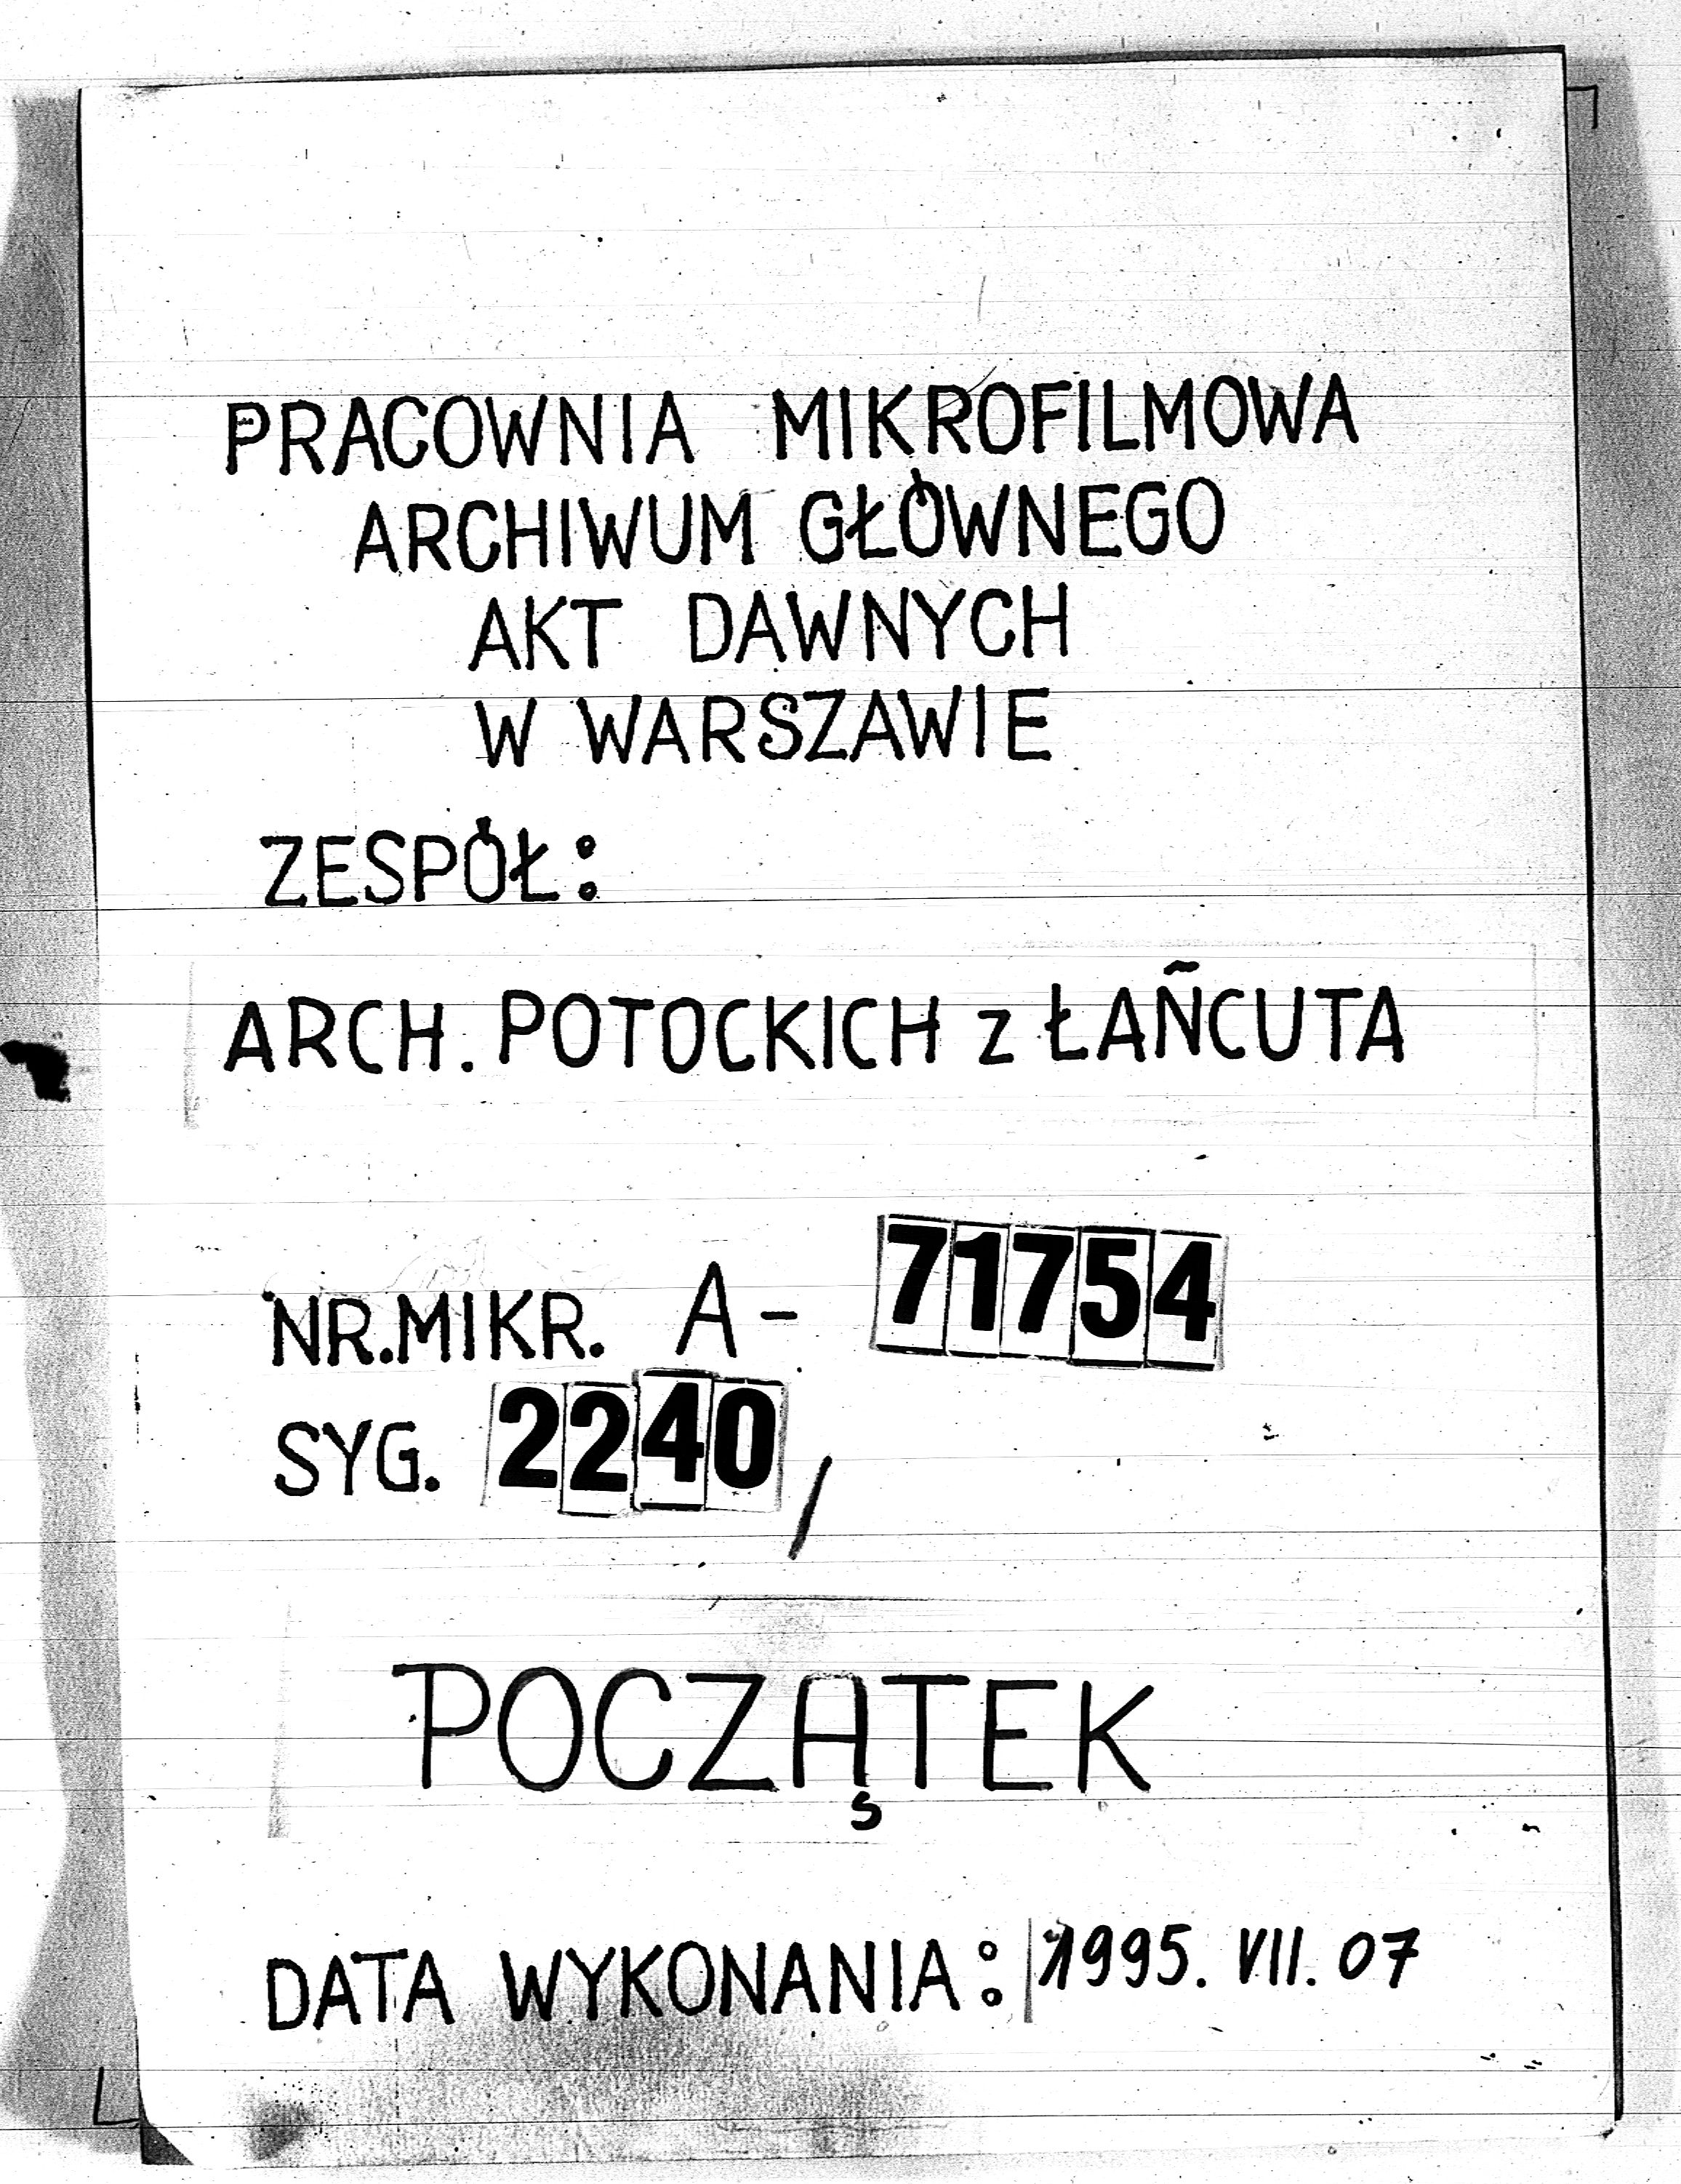 PRACOWNIA MIKROFILMOWA
ARCHIWUM GŁÓWNEGO
AKT DAWNYCH
W WARSZAWIE
ZESPÓŁ:
ARCH. POTOCKICH z ŁAŃCUTA
NR.MIKR. A- 71754
SYG. 2240/
POCZĄTEK
DATA WYKONANIA: 1995. VII. 07